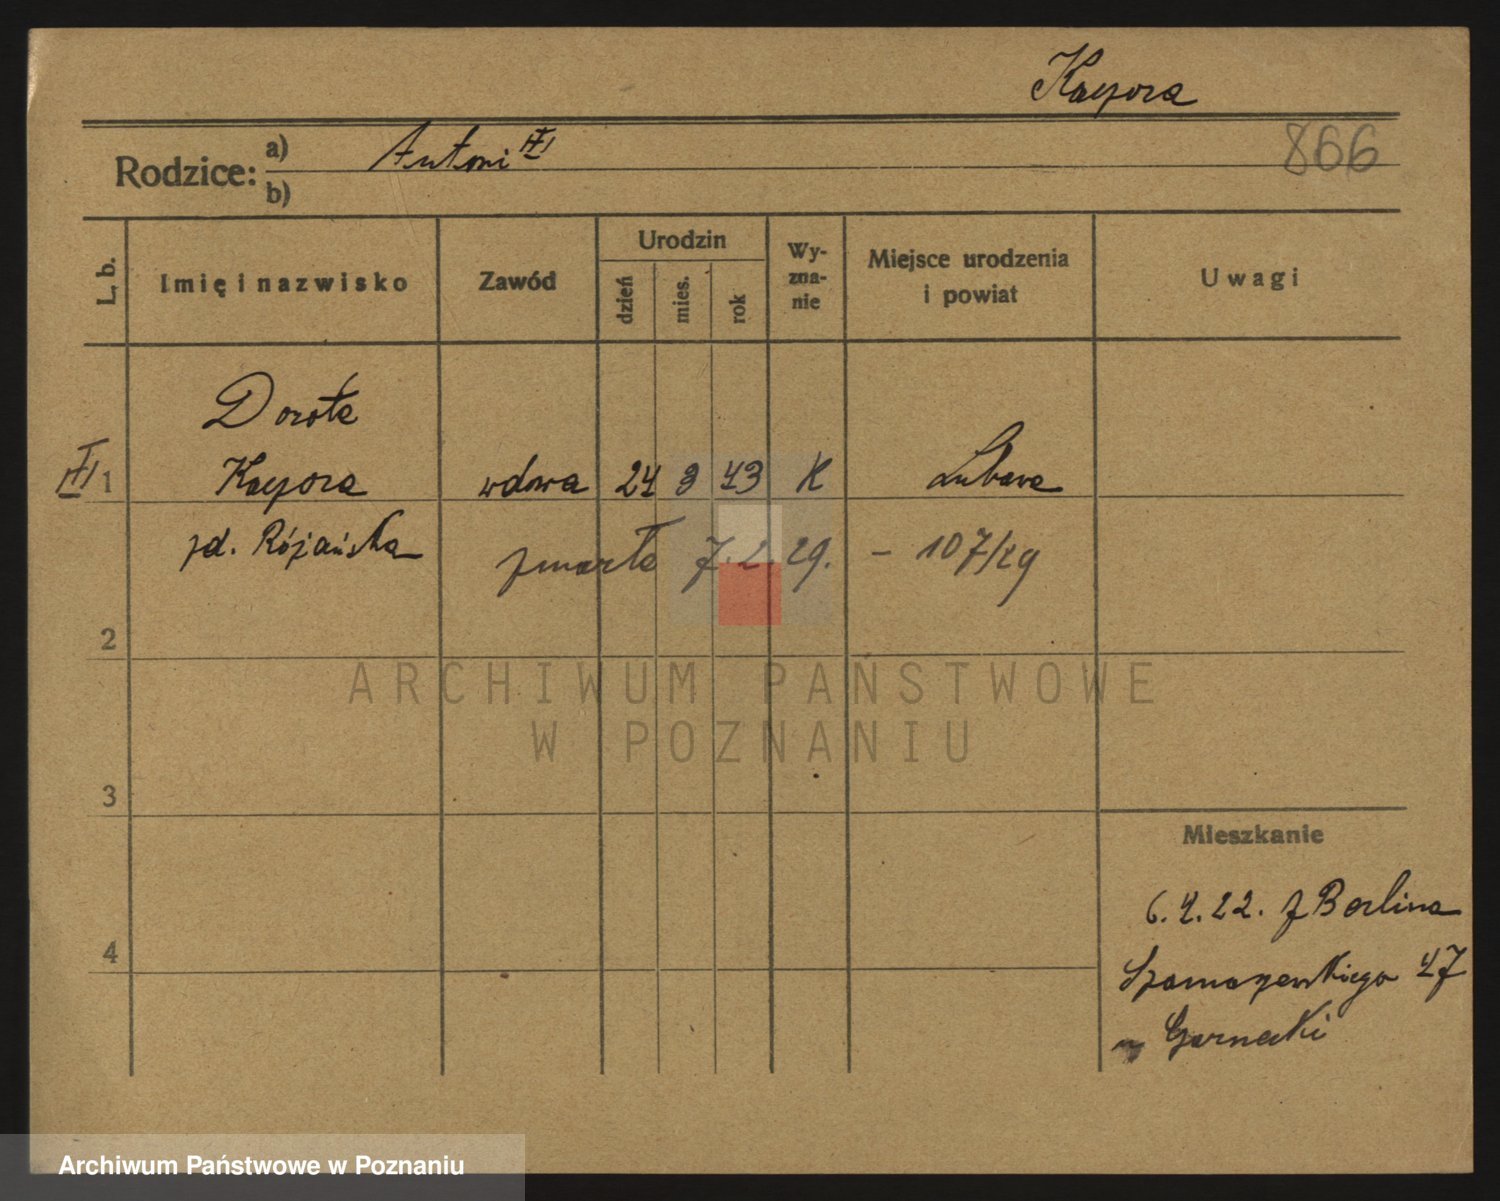 Kacpora
866
Rodzice: a) Antoni
b)
L. b. Imię i nazwisko Zawód Urodzin dzień mies. rok Wyzna-nie Miejsce urodzenia i powiat Uwagi
Dorota
1 Kacpora wdowa 24 3 43 K Lubawa
zd. Różańska zmarła 7.2.29. – 107/29
2
ARCHIWUM PAŃSTWOWE
W POZNANIU
3
Mieszkanie
6.4.22. z Berlina
4
Szamarzewskiego 47
Garnecki
Archiwum Państwowe w Poznaniu